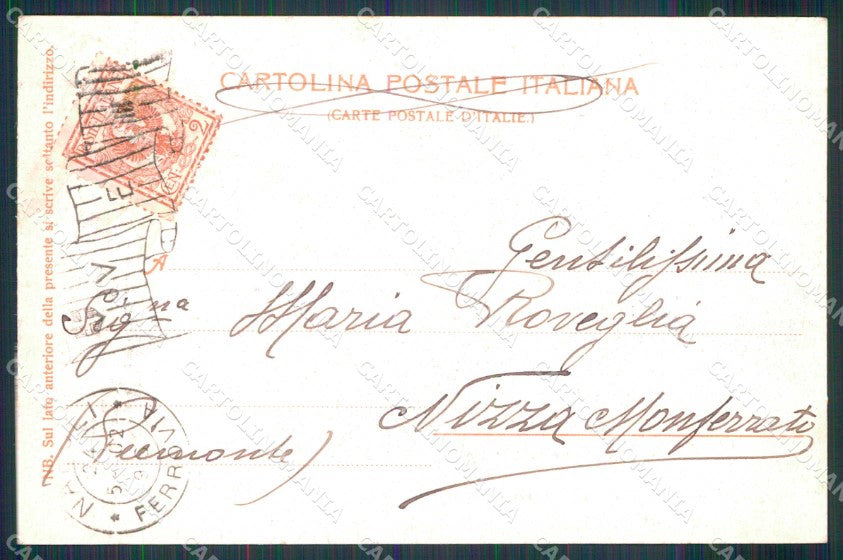 CARTOLINA POSTALE ITALIANA
(CARTE POSTALE D'ITALIE.)
NB. Sul lato anteriore della presente si scrive soltanto l'indirizzo.
A
Gentilissima
Signa Maria Roveglia
Nizza Monferrato
(Piemonte)
FERROVIA
CARTOLINOMANIA